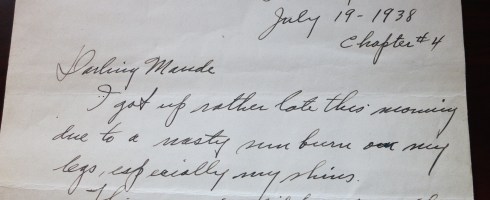 July 19-1938
Chapter #4
Darling Maude
I got up rather late this morning
due to a nasty sun burn on my
legs, especially my shins.